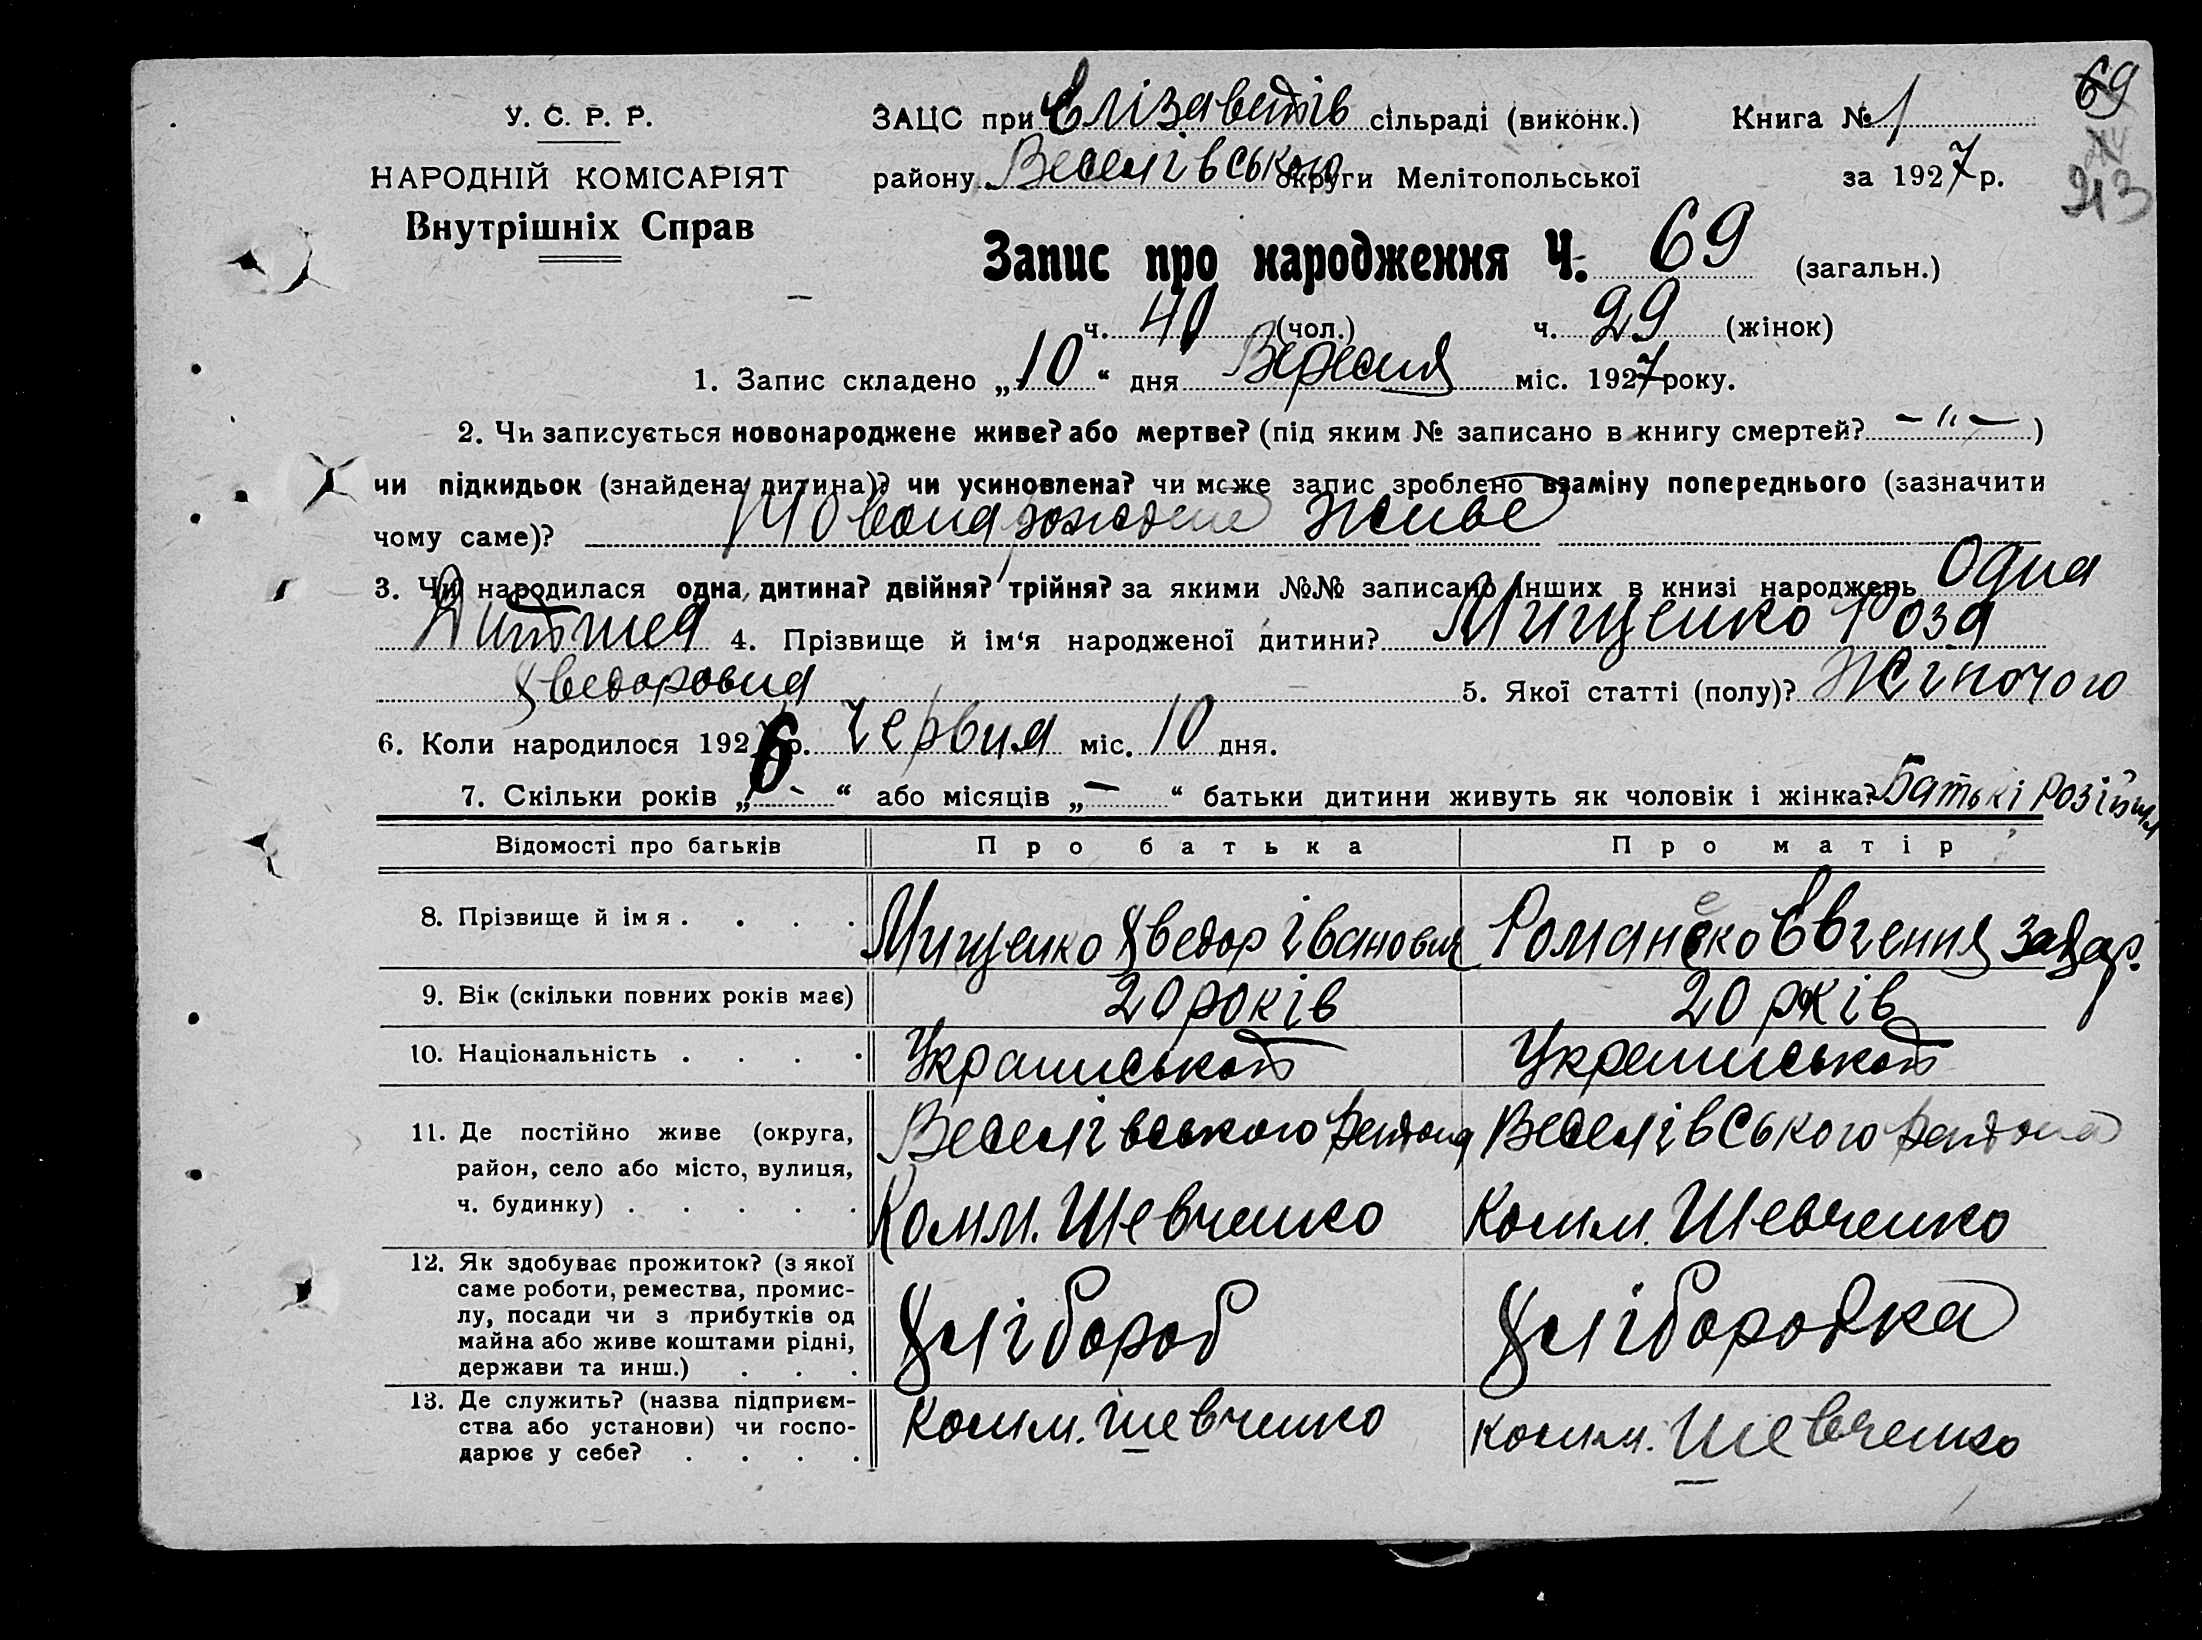 69
У. С. Р. Р.
ЗАЦС при Єлізаветів сільраді (виконк.) Книга № 1
НАРОДНІЙ КОМІСАРІЯТ
району Веселівського округи Мелітопольської за 1927 р.
Внутрішніх Справ
213
Запис про народження Ч. 69 (загальн.)
ч. 40 (чол.) ч. 29 (жінок)
1. Запис складено „10“ дня Вересня міс. 1927 року.
2. Чи записується новонароджене живе? або мертве? (під яким № записано в книгу смертей? – „ – )
чи підкидьок (знайдена дитина)? чи усиновлена? чи може запис зроблено взаміну попереднього (зазначити
чому саме)? Новонарожденe живе
3. Чи народилася одна дитина? двійня? трійня? за якими №№ записано інших в книзі народжень Одна
Дитина 4. Прізвище й ім‘я народженої дитини? Мищенко Роза
Хведоровна 5. Якої статті (полу)? Жіночого
6. Коли народилося 1926 р. Червня міс. 10 дня.
7. Скільки років „-“ або місяців „–“ батьки дитини живуть як чоловік і жінка? Батькі Розійшл
Відомості про батьків Про батька Про матір
8. Прізвище й імя . . . . Мищенко Хведор Іванович Романеко Євгения Захар.
9. Вік (скільки повних років має) 20 років 20 років
10. Національність . . . . Украинська Украинська
11. Де постійно живе (округа, Веселівського району Веселівського району
район, село або місто, вулиця,
ч. будинку) . . . . . Комм. Шевченко Комм. Шевченко
12. Як здобуває прожиток? (з якої
саме роботи, ремества, промис-
лу, посади чи з прибутків од Хлібороб Хліборобка
майна або живе коштами рідні,
держави та инш.) . . .
13. Де служить? (назва підприєм- Комм. Шевченко Комм. Шевченко
ства або установи) чи госпо-
дарює у себе? . . . .